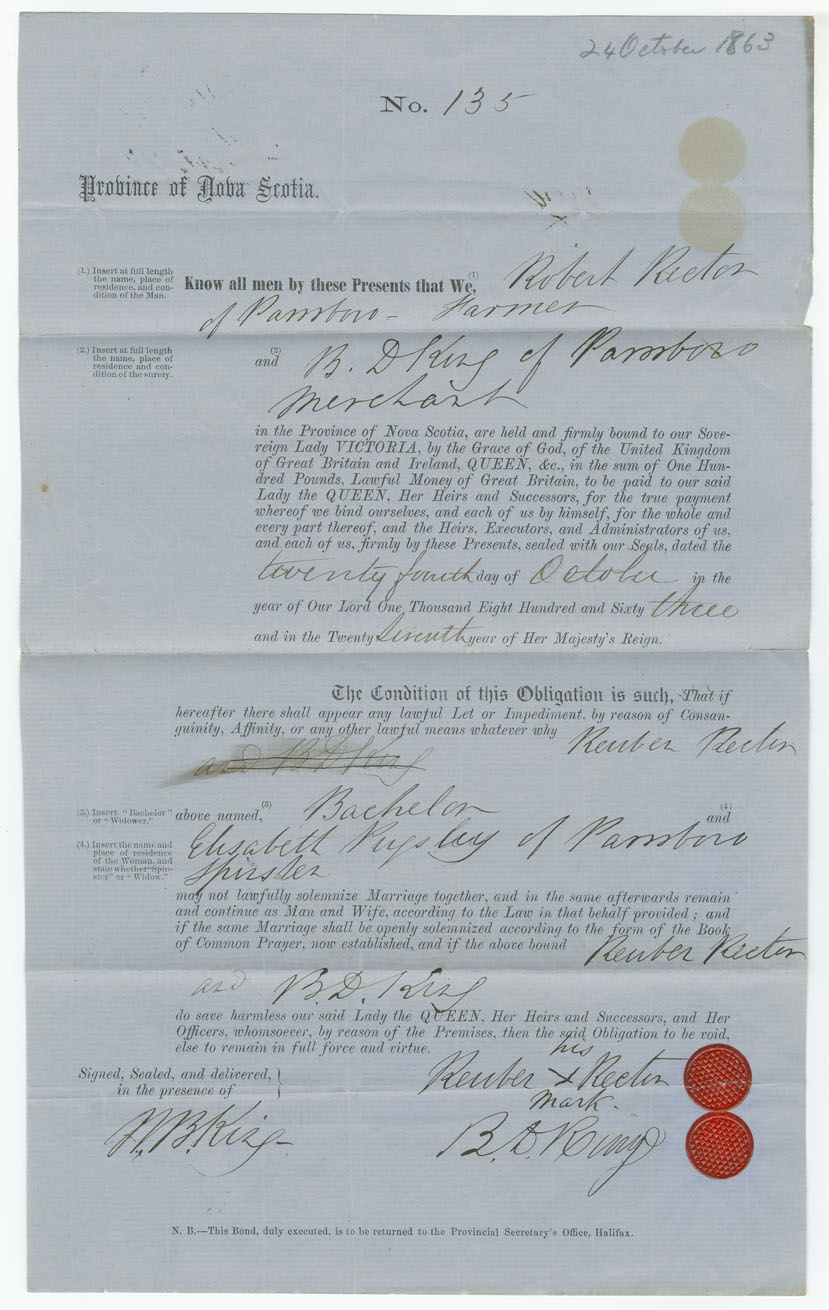 24 October 1863
No. 135
Province of Nova Scotia.
(1.) Insert at full length
the name, place of
residence, and con-
dition of the Man.
Know all men by these Presents that We,(1) Robert Rector
of Parrsboro - Farmer
(2.) Insert at full length
the name, place of
residence and con-
dition of the surety.
and (2) B. D King of Parrsboro
Merchant
in the Province of Nova Scotia, are held and firmly bound to our Sove-
reign Lady VICTORIA, by the Grace of God, of the United Kingdom
of Great Britain and Ireland, QUEEN, &c., in the sum of One Hun-
dred Pounds, Lawful Money of Great Britain, to be paid to our said
Lady the QUEEN, Her Heirs and Successors, for the true payment
whereof we bind ourselves, and each of us by himself, for the whole and
every part thereof, and the Heirs, Executors, and Administrators of us,
and each of us, firmly by these Presents, sealed with our Seals, dated the
twenty fourth day of October in the
year of Our Lord One Thousand Eight Hundred and Sixty three
and in the Twenty Seventh year of Her Majesty's Reign.
The Condition of this Obligation is such, That if
hereafter there shall appear any lawful Let or Impediment, by reason of Consan-
guinity, Affinity, or any other lawful means whatever why Reuber Rector
and B D King
(3.) Insert "Bachelor"
or "Widower."
above named,(3) Bachelor (4) and
(4.) Insert the name and
place of residence
of the Woman, and
state whether "Spin-
ster" or "Widow."
Elisabeth Pugsley of Parrsboro
Spinster
may not lawfully solemnize Marriage together, and in the same afterwards remain
and continue as Man and Wife, according to the Law in that behalf provided; and
if the same Marriage shall be openly solemnized according to the form of the Book
of Common Prayer, now established, and if the above bound Reuber Rector
and B. D. King
do save harmless our said Lady the QUEEN, Her Heirs and Successors, and Her
Officers, whomsoever, by reason of the Premises, then the said Obligation to be void,
else to remain in full force and virtue.
Signed, Sealed, and delivered,
in the presence of
his
Reuber X Rector
mark.
B. D. King
N. B.—This Bond, duly executed, is to be returned to the Provincial Secretary's Office, Halifax.